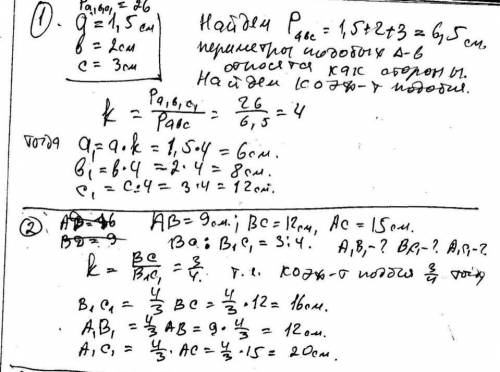 P a₁b₁c₁ = 26
① a = 1,5 см
в = 2 см
c = 3 см
Найдем P авс = 1,5+2+3 = 6,5 см.
периметры подобных Δ-в
относятся как стороны.
Найдем коэф-т подобия.
k = Pа₁в₁с₁ / Pавс = 26 / 6,5 = 4
тогда a₁ = a·k = 1,5·4 = 6 см.
в₁ = в·4 = 2·4 = 8 см.
c₁ = c·4 = 3·4 = 12 см.
② AB = 9 см; BC = 12 см, AC = 15 см.
BC : B₁C₁ = 3:4. A₁B₁-? B₁C₁-? A₁C₁-?
k = BC / B₁C₁ = 3/4. т.к. коэф-т подобия 3/4 тогда
B₁C₁ = 4/3 BC = 4/3 · 12 = 16 см.
A₁B₁ = 4/3 AB = 9 · 4/3 = 12 см.
A₁C₁ = 4/3 · AC = 4/3 · 15 = 20 см.